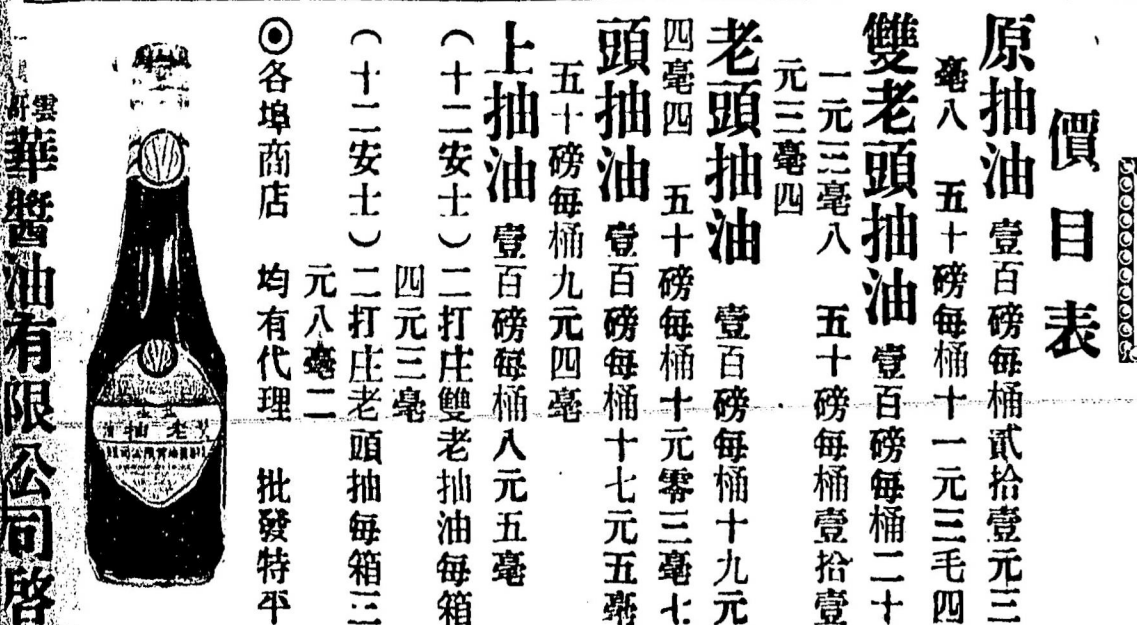 價目表
原抽油 壹百磅每桶貳拾壹元三
毫八 五十磅每桶十一元三毛四
雙老頭抽油 壹百磅每桶二十
一元三毫八 五十磅每桶壹拾壹
元三毫四
老頭抽油 壹百磅每桶十九元
四毫四 五十磅每桶十元零三毫七
頭抽油 壹百磅每桶十七元五毫
五十磅每桶九元四毫
上抽油 壹百磅每桶八元五毫
(十二安士)二打庄雙老抽油每箱
四元三毫
(十二安士)二打庄老頭抽每箱三
元八毫二
◉各埠商店 均有代理 批發特平
老抽
華醬油有限公司啓